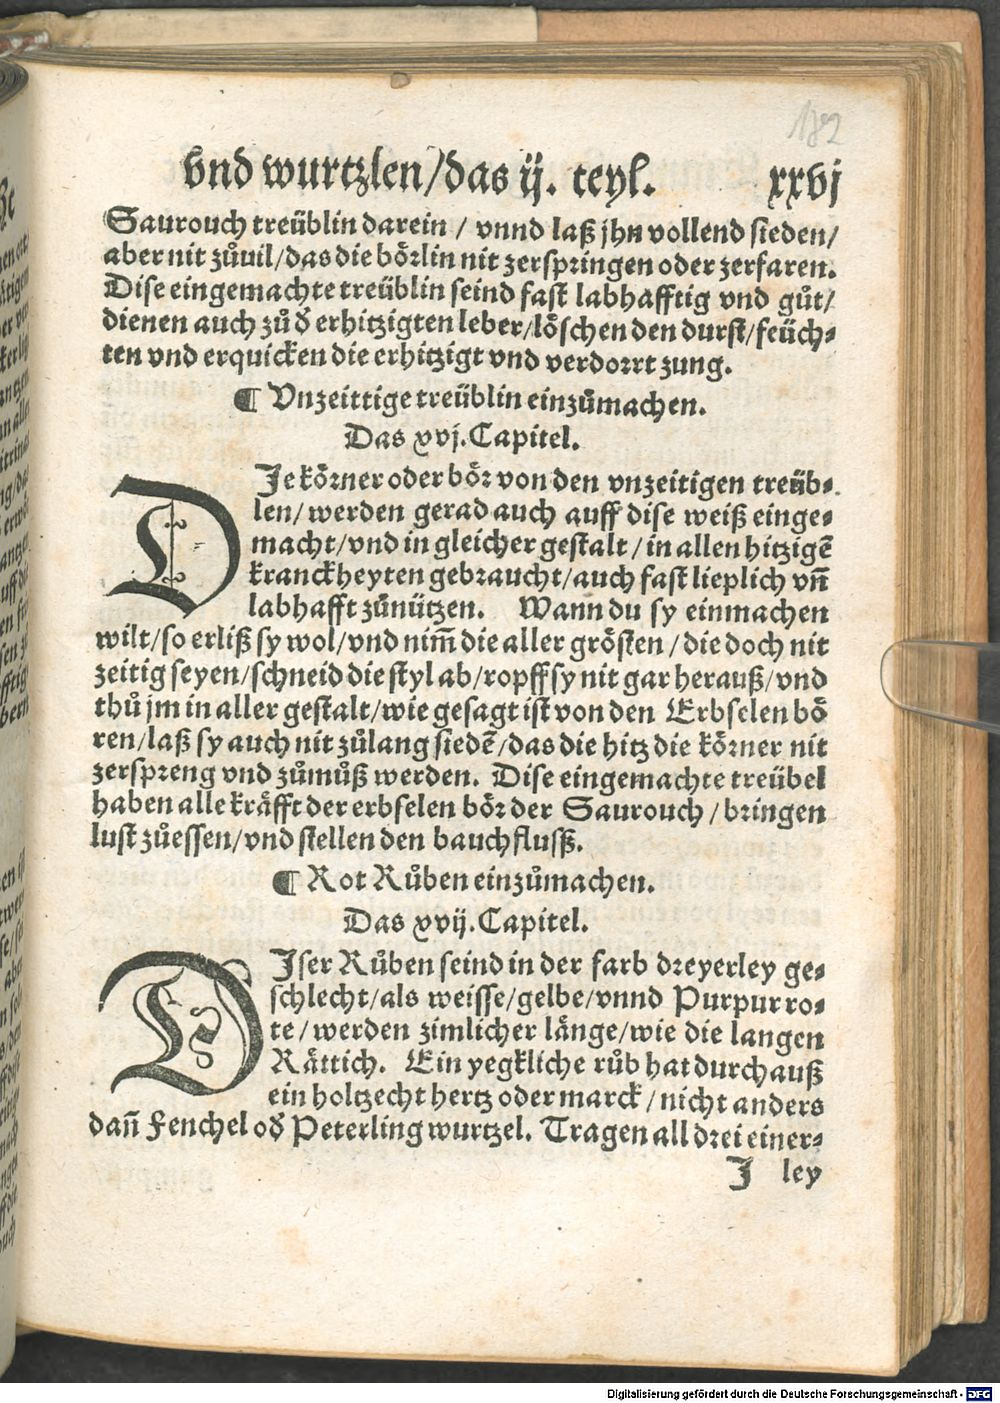 182
vnd wurtzlen/das ij. teyl. xxvj
Saurouch treüblin darein / vnnd laß jhn vollend sieden/
aber nit zůuil/das die börlin nit zerspringen oder zerfaren.
Dise eingemachte treüblin seind fast labhafftig vnd gůt/
dienen auch zů đ erhitzigten leber/löschen den durst/feüch-
ten vnd erquicken die erhitzigt vnd verdorrt zung.
¶ Vnzeittige treüblin einzůmachen.
Das xvj. Capitel.
DJe körner oder bör von den vnzeitigen treüb-
len/ werden gerad auch auff dise weiß einge-
macht/vnd in gleicher gestalt / in allen hitzigē
kranckheyten gebraucht/auch fast lieplich vn̄
labhafft zůnützen. Wann du sy einmachen
wilt/so erliß sy wol/vnd nim̄ die aller grösten / die doch nit
zeitig seyen/schneid die styl ab/ropff sy nit gar herauß/vnd
thů jm in aller gestalt/wie gesagt ist von den Erbselen bö
ren/laß sy auch nit zůlang siedē/das die hitz die körner nit
zerspreng vnd zůmůß werden. Dise eingemachte treübel
haben alle kräfft der erbselen bör der Saurouch / bringen
lust zůessen/vnd stellen den bauchflusß.
¶ Rot Růben einzůmachen.
Das xvij. Capitel.
DJser Růben seind in der farb dreyerley ge-
schlecht/als weisse/gelbe/vnnd Purpurro-
te/ werden zimlicher länge/wie die langen
Rättich. Ein yegkliche růb hat durchauß
ein holtzecht hertz oder marck / nicht anders
dan̄ Fenchel ođ Peterling wurtzel. Tragen all drei einer-
J ley
Digitalisierung gefördert durch die Deutsche Forschungsgemeinschaft - DFG